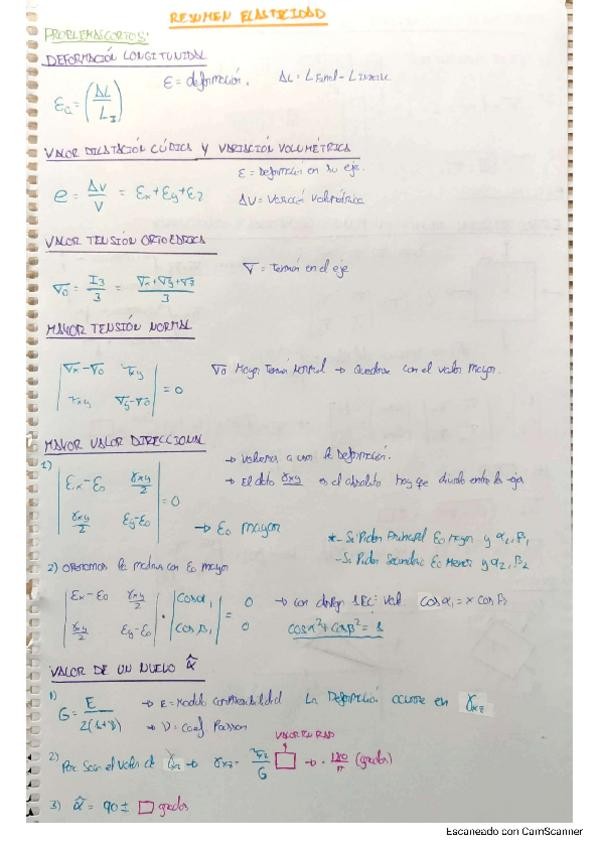 RESUMEN ELASTICIDAD
PROBLEMAS CORTOS:
DEFORMACIÓN LONGITUNIDAL
Ea = (ΔL / LI) ε = deformación. ΔL = LFinal - LInicial
VALOR DILATACIÓN CÚBICA Y VARIACIÓN VOLUMÉTRICA
e = Δv/V = Ex + Ey + Ez
ε = Deformación en su eje.
ΔV = Variación volumétrica
VALOR TENSIÓN ORTOEDRICA
σ0 = I3/3 = (σx + σy + σz)/3 σ = Tensión en el eje
MAYOR TENSIÓN NORMAL
|σx - σ0 τxy|
|τxy σy - σ0| = 0
σ0 Mayor Tensión Normal → Quedarse con el valor mayor.
MAYOR VALOR DIRECCIONAL
1) |Ex - E0 γxy/2|
|γxy/2 Ey - E0| = 0
→ Volvemos a usar la deformación.
→ El dato γxy es el absoluto hay que dividir entre
→ E0 mayor
*- Si Piden Principal E0 Mayor y α1, β1
- Si Piden Secundario E0 Menor y α2, β2
2) OBTENEMOS la matriz con E0 mayor
|Ex - E0 γxy/2| · |cosα1| = 0
|γxy/2 Ey - E0| |cosβ1| = 0
→ con cosα1 = x cosβ
cosα² + cosβ² = 1
VALOR DE UN NUEVO α̂
1) G = E / 2(1+ν) → E = Modulo La Deformación ocurre en γxz
→ ν = Coef. Poisson
VALOR EN RAD
2) Para Sacar el valor de → γxz = τxz/G □ → · 180/π (grados)
3) α̂ = 90 ± □ grados
Escaneado con CamScanner